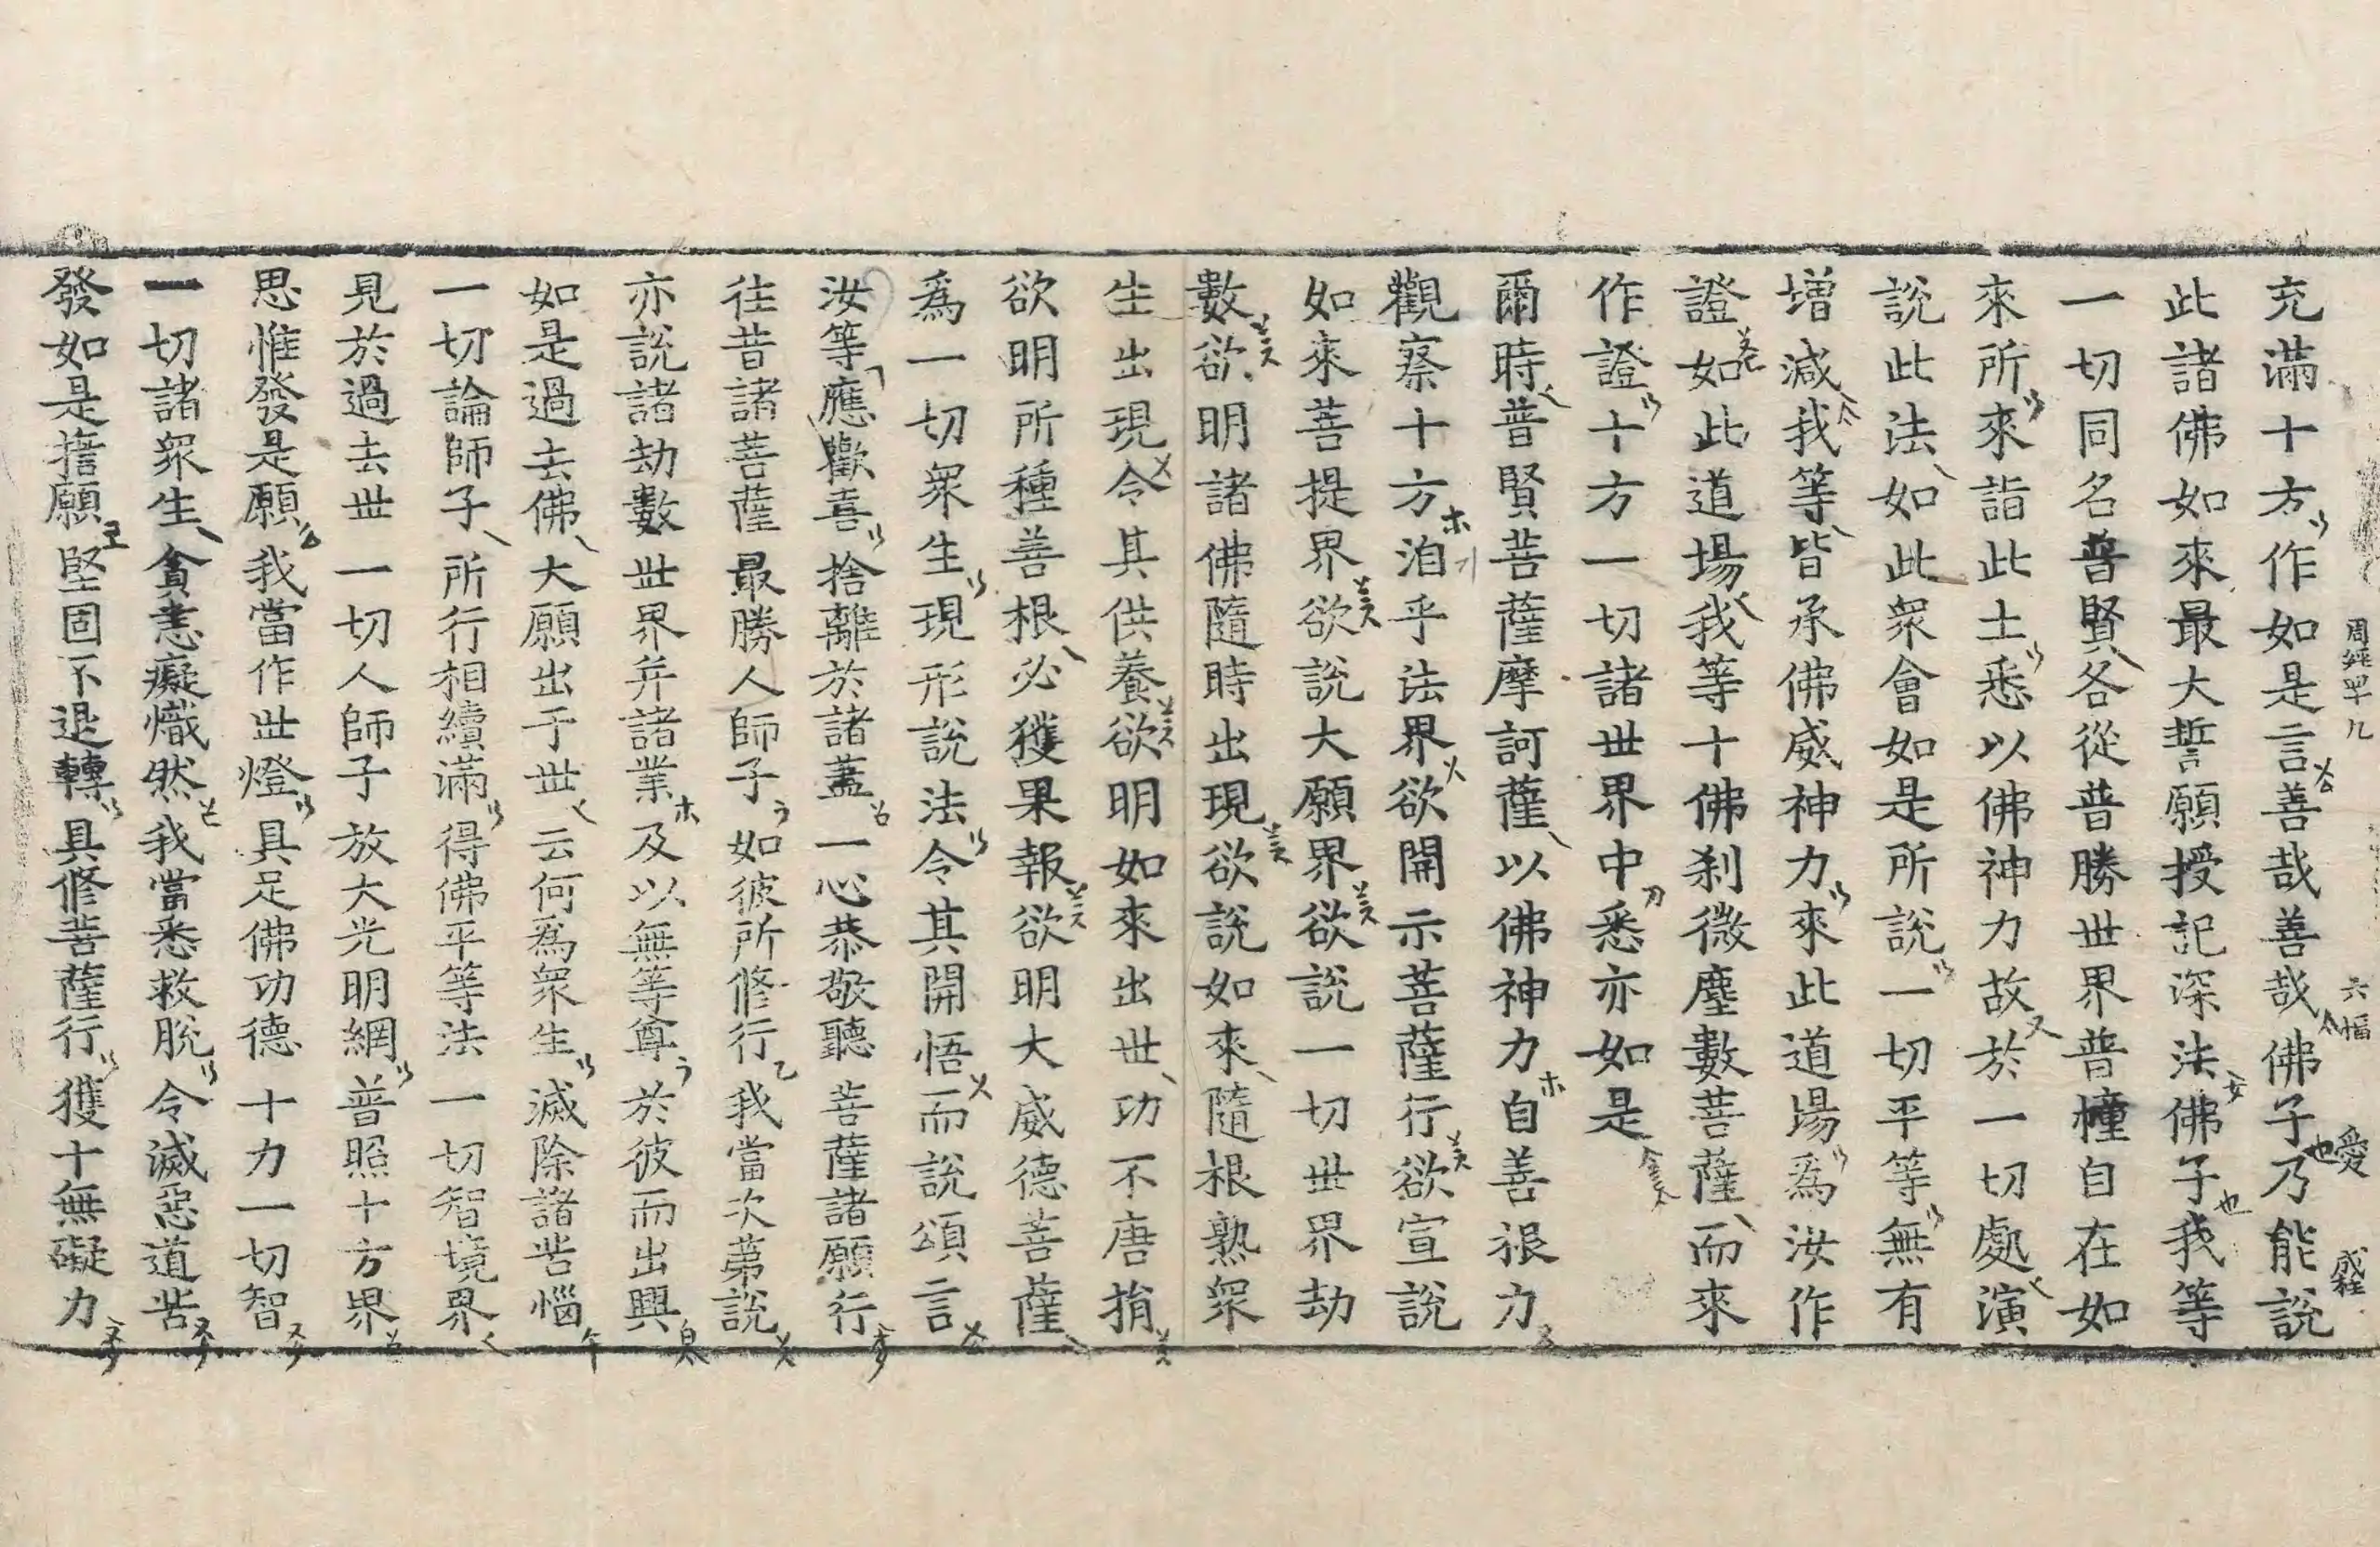 充滿十方作如是言善哉善哉佛子乃能說
此諸佛如來最大誓願授記深法佛子我等
一切同名普賢各從普勝世界普幢自在如
來所來詣此土悉以佛神力故於一切處演
說此法如此衆會如是所說一切平等無有
增減我等皆承佛威神力來此道場爲汝作
證如此道場我等十佛刹微塵數菩薩而來
作證十方一切諸世界中悉亦如是
爾時普賢菩薩摩訶薩以佛神力自善根力
觀察十方洎乎法界欲開示菩薩行欲宣說
如來菩提界欲說大願界欲說一切世界劫
數欲明諸佛隨時出現欲說如來隨根熟衆
生出現令其供養欲明如來出世功不唐捐
欲明所種善根必獲果報欲明大威德菩薩
爲一切衆生現形說法令其開悟而說頌言
汝等應歡喜捨離於諸蓋一心恭敬聽菩薩諸願行
往昔諸菩薩最勝人師子如彼所修行我當次第說
亦說諸劫數世界并諸業及以無等尊於彼而出興
如是過去佛大願出于世云何爲衆生滅除諸苦惱
一切論師子所行相續滿得佛平等法一切智境界
見於過去世一切人師子放大光明網普照十方界
思惟發是願我當作世燈具足佛功德十力一切智
一切諸衆生貪恚癡熾然我當悉救脫令滅惡道苦
發如是誓願堅固不退轉具修菩薩行獲十無礙力